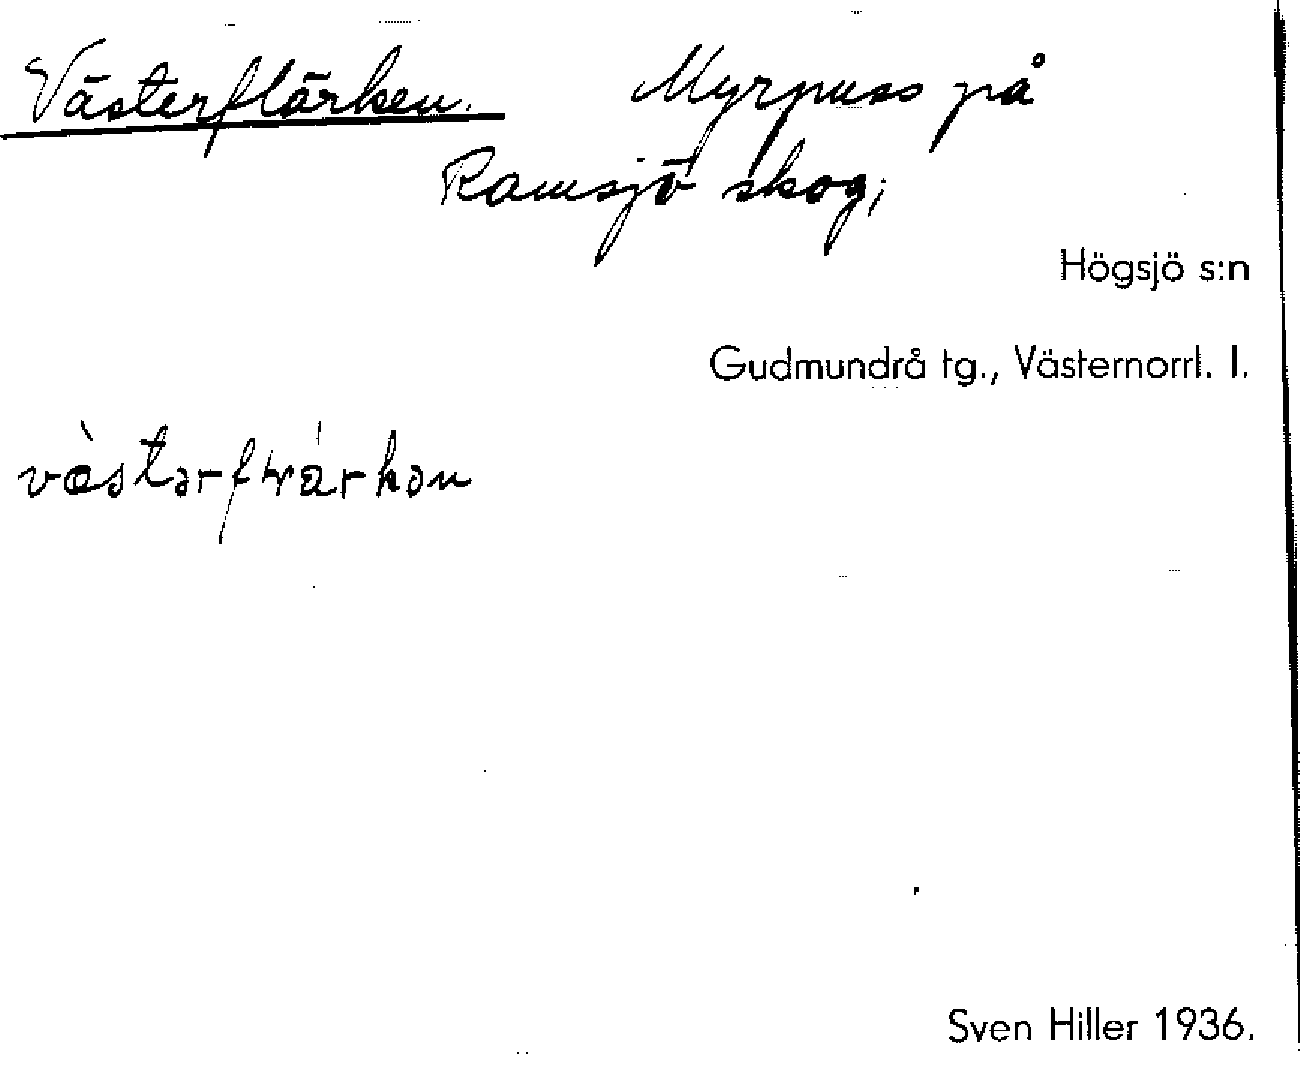 Västerflärken. Myrpuss på
Ramsjö skog;
Högsjö s:n
Gudmundrå tg., Västernorrl. l.
Sven Hiller 1936.